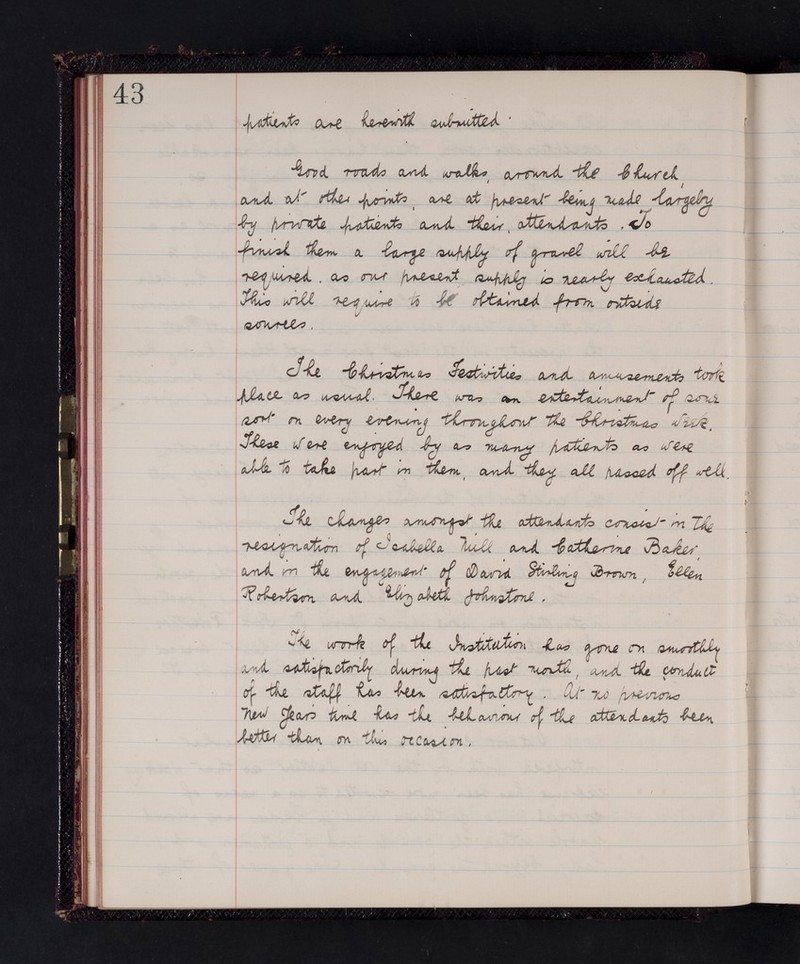 43
patients are herewith submitted.
Good roads and walks, around the Church,
and at other points, are at present being made largely
by private patients and their, attendants. To
finish them a large supply of gravel will be
required. as our present supply is nearly exhausted.
This will require to be obtained from outside
sources.
The Christmas Festivities and amusements took
place as usual. There was an entertainment of some
sort on every evening throughout the Christmas Week.
These were enjoyed by as many patients as were
able to take part in them, and they all passed off well.
The changes amongst the attendants consist in the
resignation of Isabella and Catherine Baker,
and in the engagement of David Stirling Brown, Ellen
Robertson and Elizabeth Johnstone.
The work of the Institution has gone on smoothly
and satisfactorily during the past month, and the conduct
of the staff has been satisfactory. At no previous
New Years time has the behaviour of the attendants been
better than on this occasion.